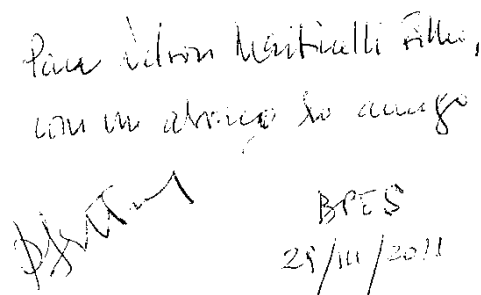 Para Nelson Martinelli Filho,
com um abraço do amigo
BPES
/III/2011